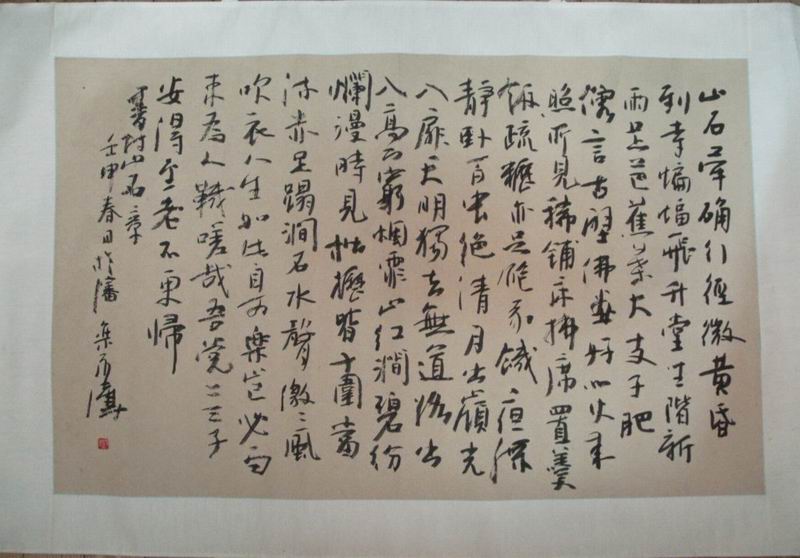 山石犖确行徑微黄昏
到寺蝙蝠飛升堂坐階新
雨足芭蕉葉大支子肥
僧言古壁佛畫好以火来
照所見稀鋪床拂席置羹
飯疏糲亦足飽我饑夜深
静卧百虫絶清月出嶺光
入扉天明獨去無道路出
入高下窮烟霏山红澗碧纷
爛漫時見松櫪皆十圍當
流赤足蹋澗石水聲激〻風
吹衣人生如此自可樂豈必局
束為人鞿嗟哉吾黨二三子
安得至老不更歸
山石章
壬申春日於瀋